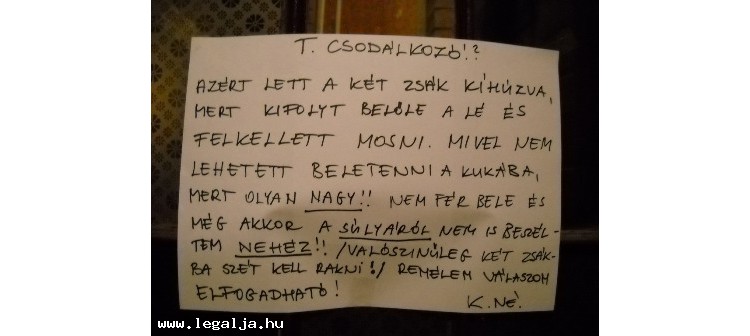 T. CSODÁLKOZÓ!?
AZÉRT LETT A KÉT ZSÁK KÍHÚZVA,
MERT KIFOLYT BELŐLE A LÉ ÉS
FELKELLETT MOSNI. MIVEL NEM
LEHETETT BELETENNI A KUKÁBA,
MERT OLYAN NAGY!! NEM FÉR BELE ÉS
MÉG AKKOR A SÚLYÁRÓL NEM IS BESZÉL-
TEM NEHÉZ!! /VALÓSZINŰLEG KÉT ZSÁK-
BA SZÉT KELL RAKNI!/ REMÉLEM VÁLASZOM
ELFOGADHATÓ!
K.NÉ.
www.legalja.hu